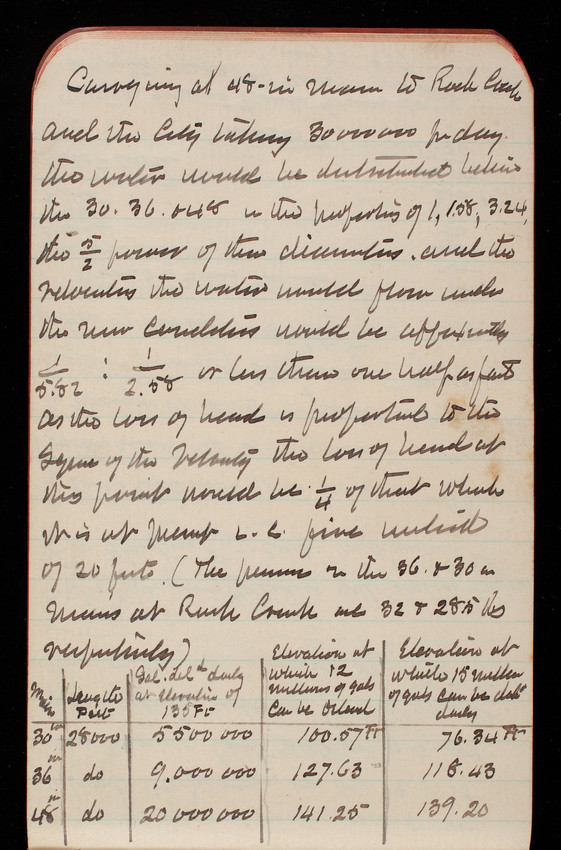 Conveying at 48-in main to Rock Creek
and the City taking 30000000 pr day.
the water would be distributed between
the 30. 36. & 48 in the proportion of 1, 1.58, 3.24,
the 5/2 power of their diameters. and the
velocities the water would flow under
the new conditions would be approximately
1/5.82 : 1/2.58 or less than one half as fast
as the loss of head is proportional to the
Square of the Velocity the loss of head at
this point would be 1/4 of that which
it is at present i.e. five instead
of 20 feet. (The pressures in the 36. & 30 in
mains at Rock Creek are 32 & 28.5 lbs
respectively)
Main | Length Feet | Gal. deld daily at Elevation of 135 Ft | Elevation at which 12 millions of gals can be | Elevation at which 15 million of gals can be deld daily
30 in | 28000 | 5500 000 | 100.57 Ft | 76.34 Ft
36 in | do | 9.000 000 | 127.63 | 118.43
48 in | do | 20 000 000 | 141.25 | 139.20